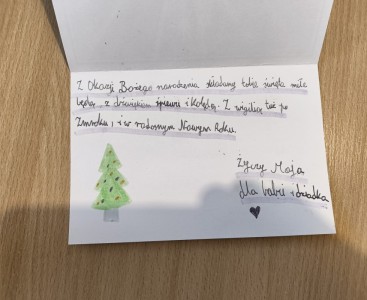 Z Okazji Bożego narodzenia składamy tobie, święta miłe
będą, z dźwiękiem śpiewu i kolędą. Z wigilią tuż po
Zmroku, i w radosnym Nowym Roku.
Życzy Maja
dla babci i dziadka